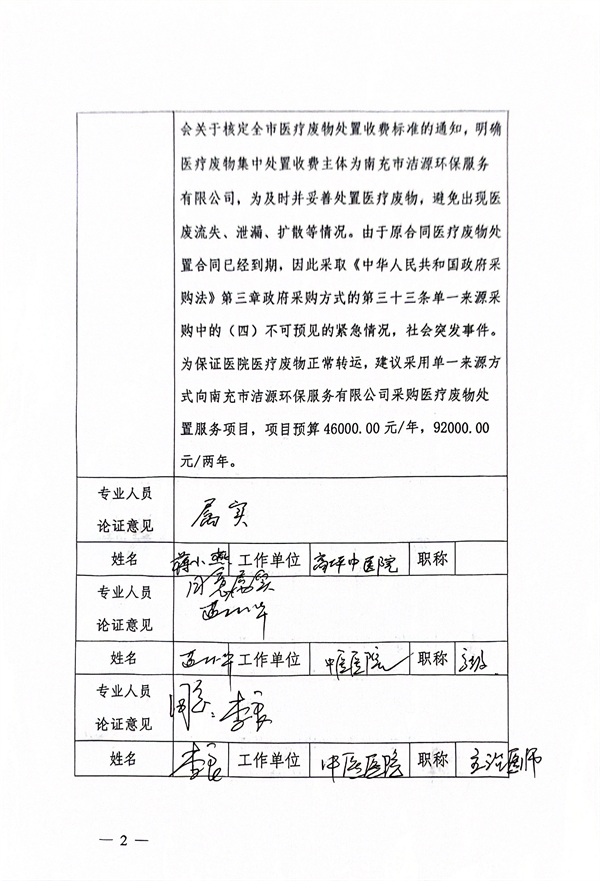 会关于核定全市医疗废物处置收费标准的通知，明确
医疗废物集中处置收费主体为南充市洁源环保服务
有限公司，为及时并妥善处置医疗废物，避免出现医
废流失、泄漏、扩散等情况。由于原合同医疗废物处
置合同已经到期，因此采取《中华人民共和国政府采
购法》第三章政府采购方式的第三十三条单一来源采
购中的（四）不可预见的紧急情况，社会突发事件。
为保证医院医疗废物正常转运，建议采用单一来源方
式向南充市洁源环保服务有限公司采购医疗废物处
置服务项目，项目预算 46000.00 元/年，92000.00
元/两年。
专业人员
论证意见
属实
姓名 蒋小燕 工作单位 高坪中医院 职称
专业人员
论证意见
同意属实
姓名 工作单位 中医医院 职称
专业人员
论证意见
同意. 李良
姓名 李良 工作单位 中医医院 职称 主治医师
— 2 —